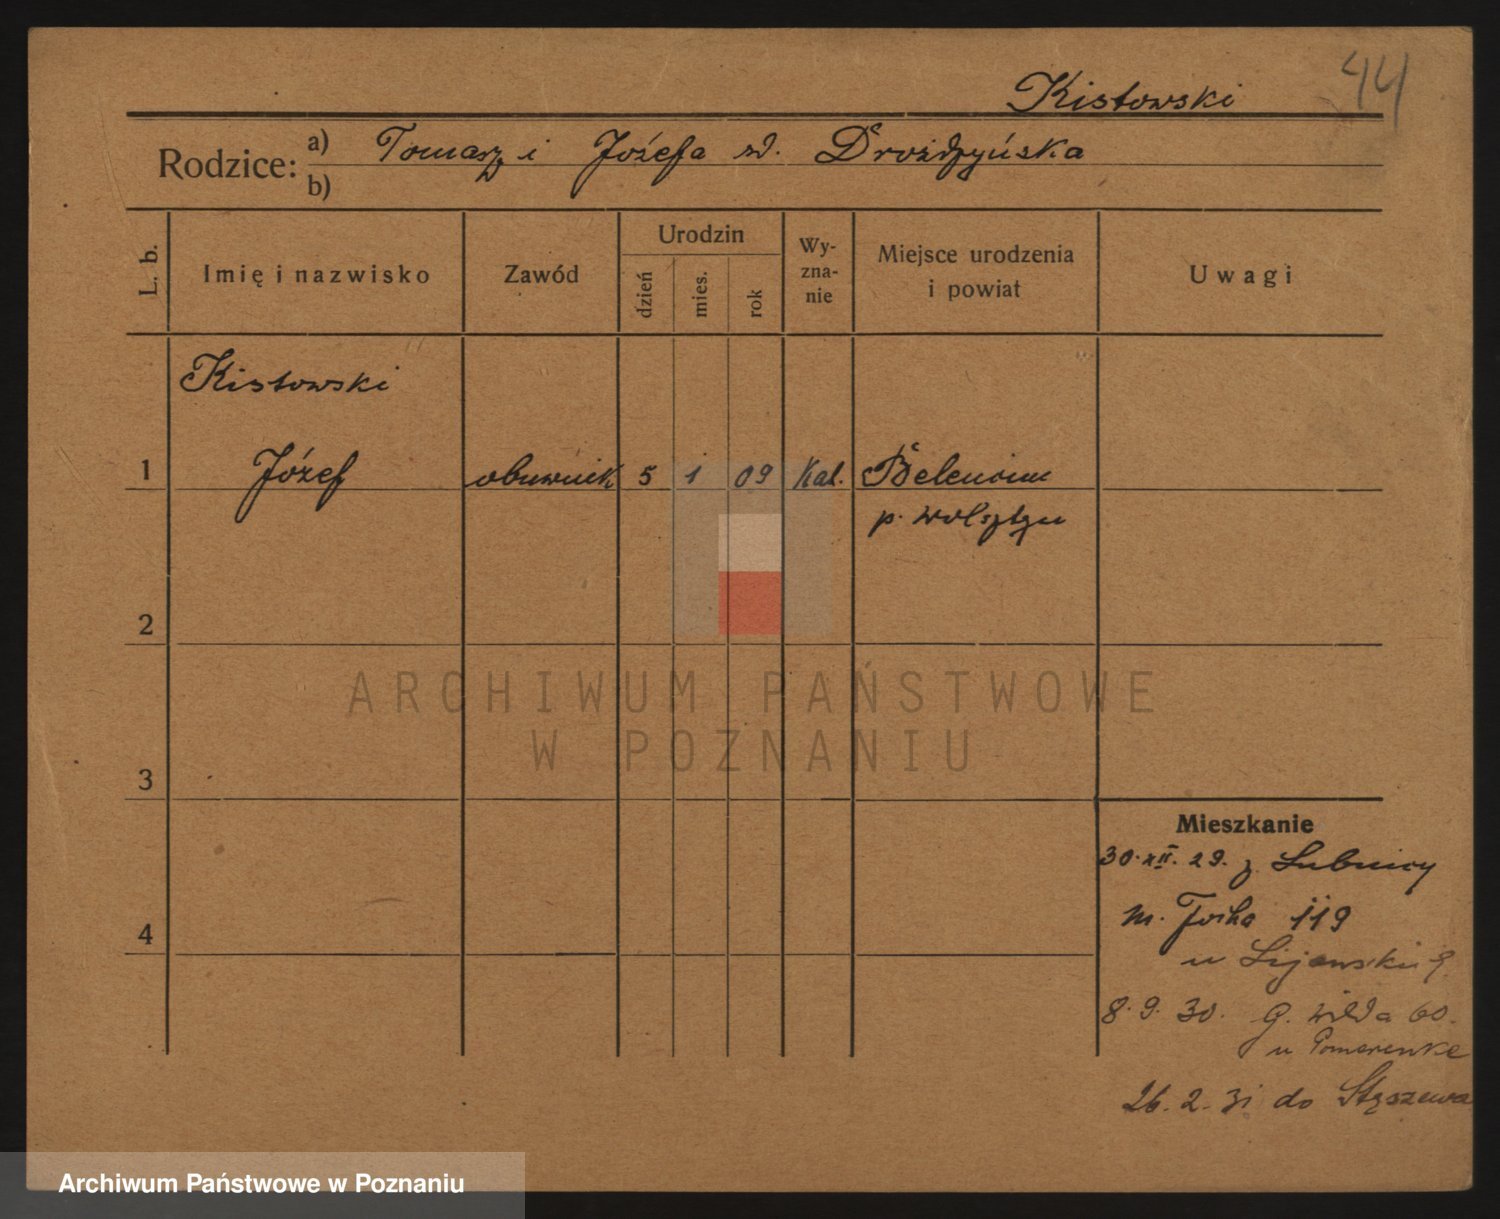 Kistowski
44
Rodzice: a) Tomasz i Józefa zd. Drożdżyńska
b)
L. b.
Imię i nazwisko
Zawód
Urodzin
dzień
mies.
rok
Wy-
zna-
nie
Miejsce urodzenia
i powiat
Uwagi
Kistowski
1 Józef obuwnik 5 1 09 Kat. Belencin
p. Wolsztyn
2
3
4
Mieszkanie
30.XII.29. z Lubnicy
m. 119
u
8.9.30. G. Wilda 60.
u Pomerenke
26.2.31 do Stęszewa
ARCHIWUM PAŃSTWOWE
W POZNANIU
Archiwum Państwowe w Poznaniu